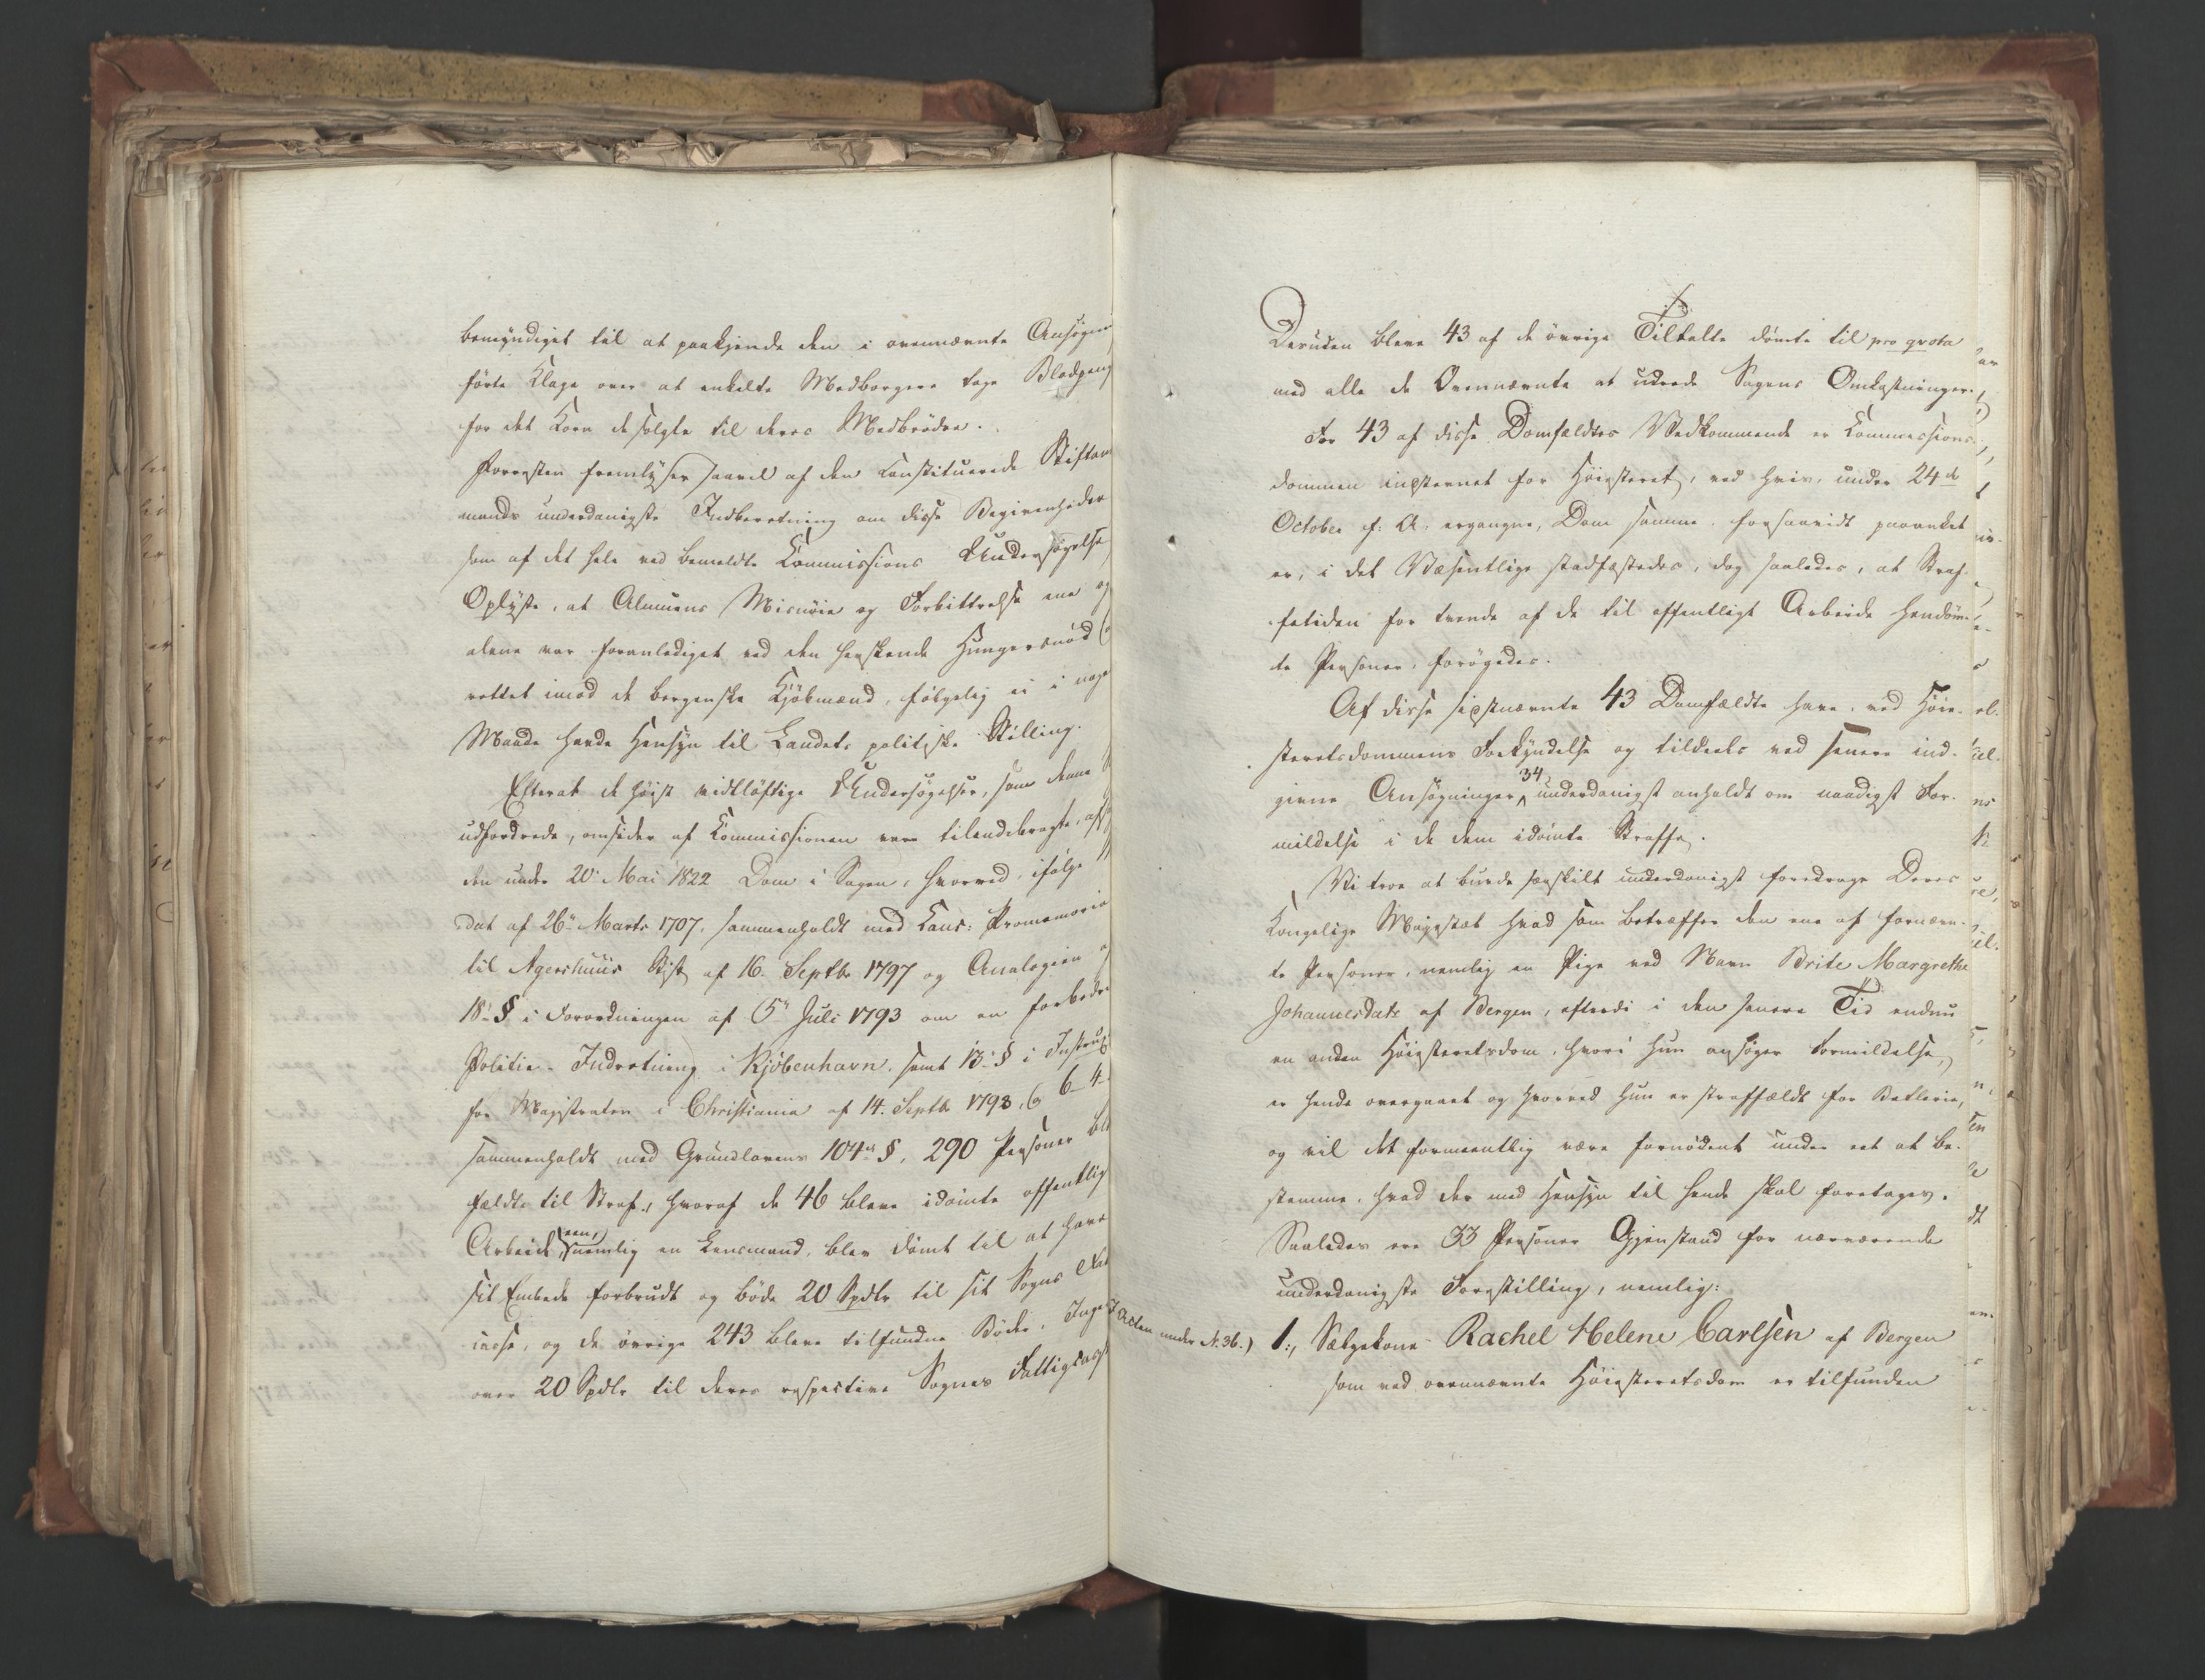 bemyndiget til at paakjende den i ovennævnte Ansøgni
førte Klage over at enkelte Medborgere tage Blodpeng
for det Korn de solgte til deres Medbrödre.
Forresten fremlyser saavel af den constituerede Stiftam
mands underdanigste Indberetning om disse Begivenheder
som af det hele ved bemeldte Commissions Undersøgelse
Oplyste, at Almuens Misnöie og Forbittrelse ene og
alene var foranlediget ved den herskende Hungersnöd
rettet imod de bergenske Kjöbmænd, følgelig ei i noge
Maade havde Hensyn til Landets politiske Stilling.
Efterat de høist vidtløftige Undersøgelser, som denne
udfordrede, omsider af Commissionen vare tilendebragte,
den under 20 Mai 1822 Dom i Sagen, hvorved, ifølge
dat af 26 Marts 1707, sammenholdt med Canc: Promemoria
til Agershuus Stift af 16 Septbr 1797 og Analogien
18 § i Forordningen af 5 Juli 1793 om en forbedr
Politie-Indretning i Kjöbenhavn, samt 13 § i Instrux
for Magistraten i Christiania af 14 Septbr 1793, 6 - 4
sammenholdt med Grundlovens 104 §, 290 Personer ble
fældte til Straf, hvoraf de 46 bleve idömte offentlig
Arbeide, een, nemlig en Lensmand, blev dömt til at have
sit Embede forbrudt og böde 20 Spdlr til sit Sogns
casse, og de övrige 243 bleve tilfundne Böder, Inge
over 20 Spdlr til deres respective Sognes Fattigcasse
Desuden bleve 43 af de övrige Tiltalte dömte til pro qvota
med alle de Ovennævnte at udrede Sagens Omkostninger.
For 43 af disse Domfældtes Vedkommende er Commissions-
dommen indstevnet for Høiesteret, ved hvis, under 24de
October f: A. ergangne, Dom samme, forsaavidt paaanket
er, i det Væsentlige stadfæstedes, dog saaledes, at Straf-
fetiden for trende af de til offentligt Arbeide hendöm-
te Personer, forögedes.
Af disse sidstnævnte 43 Domfældte have, ved Høie-
steretsdommens Forkyndelse og tildeels ved senere ind-
givne Ansøgninger, 34 underdanigst anholdt om naadigst For-
mildelse i de dem idömte Straffe.
Vi troe at burde særskilt underdanigst foredrage Deres
Kongelige Majestæt hvad som betræffer den ene af fornævn-
te Personer, nemlig en Pige ved Navn Brite Margrethe
Johannesdatr af Bergen, efterdi i den senere Tid endnu
en anden Høiesteretsdom, hvori hun ansöger Formildelse,
er hende overgaaet og hvorved hun er straffældt for Betlerie,
og vil det formeentlig være fornödent under eet at be-
stemme, hvad der med Hensyn til hende skal foretages.
Saaledes ere 33 Personer Gjenstand for nærværende
underdanigste Forestilling, nemlig:
Acten under N. 36.) 1., Sælgekone Rachel Helene Carlsen af Bergen
som ved ovennævnte Høiesteretsdom er tilfunden